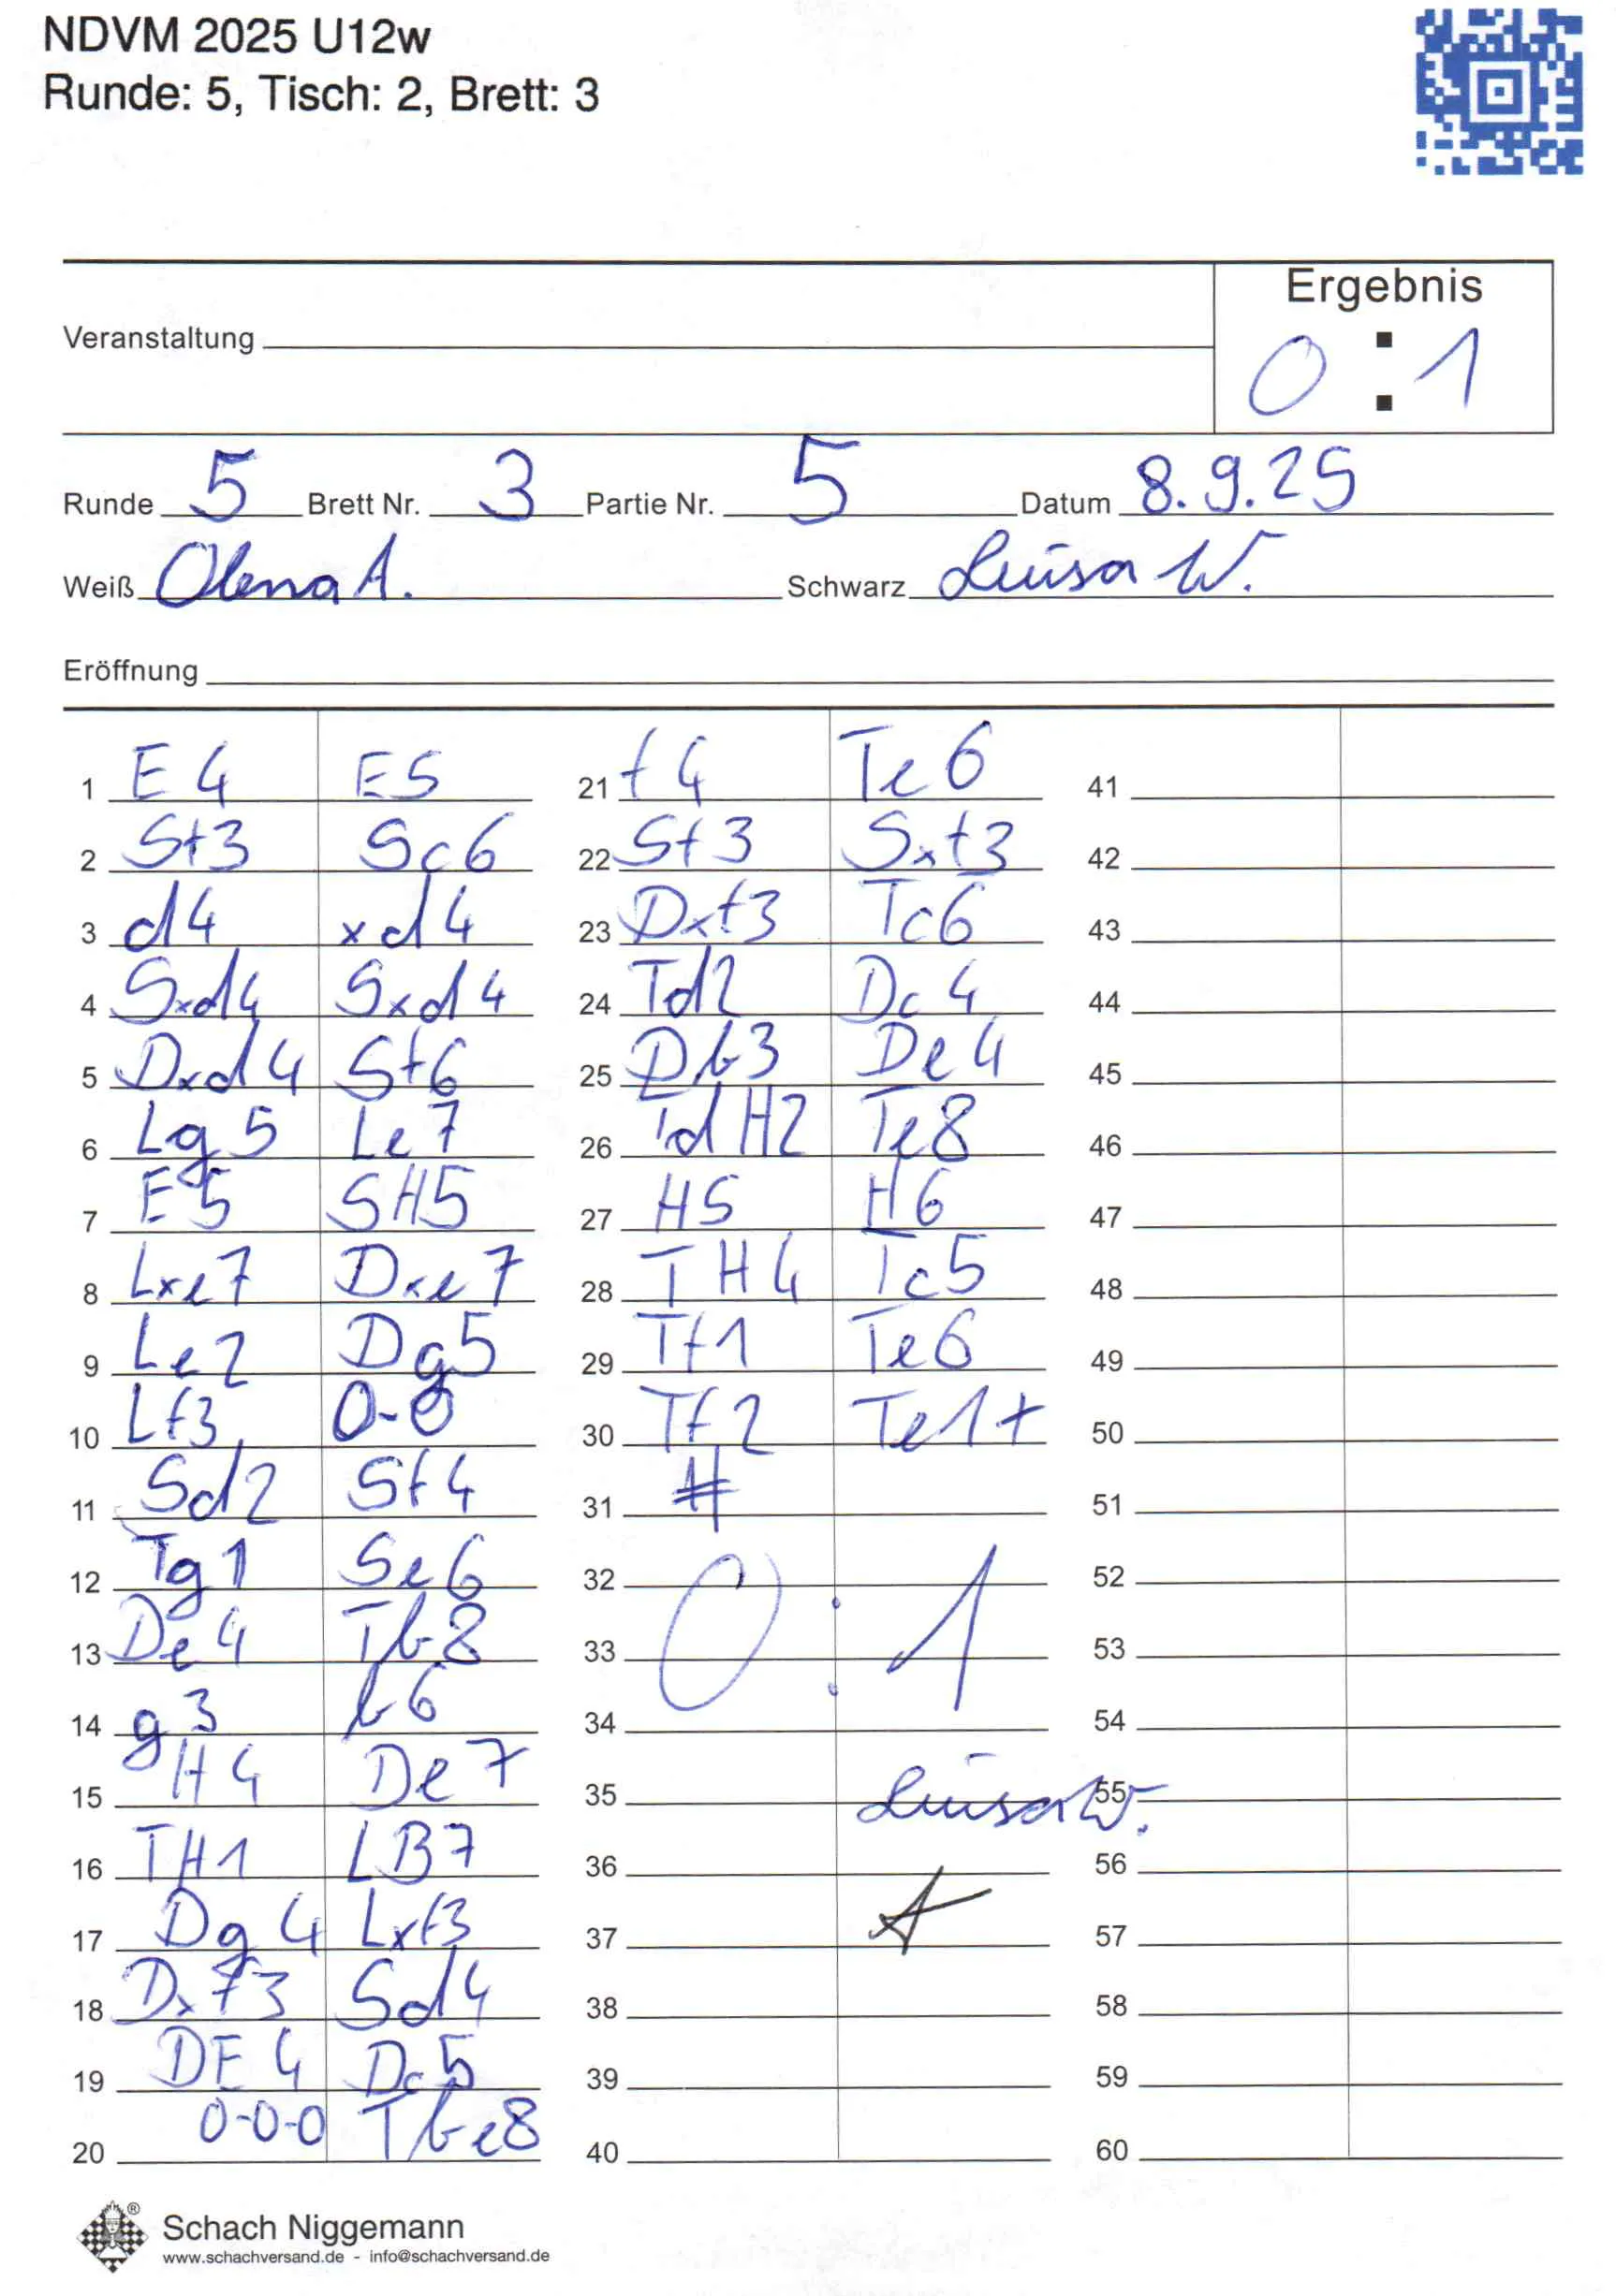 NDVM 2025 U12w
Runde: 5, Tisch: 2, Brett: 3
Ergebnis
Veranstaltung
0 : 1
Runde 5 Brett Nr. 3 Partie Nr. 5 Datum 8.9.25
Weiß Olena A. Schwarz Luisa W.
Eröffnung
1 E4 E5
2 Sf3 Sc6
3 d4 xd4
4 Sxd4 Sxd4
5 Dxd4 Sf6
6 Lg5 Le7
7 E5 SH5
8 Lxe7 Dxe7
9 Le2 Dg5
10 Lf3 0-0
11 Sd2 Sf4
12 Tg1 Se6
13 De4 Tb8
14 g3 b6
15 H4 De7
16 TH1 LB7
17 Dg4 Lxf3
18 Dxf3 Sd4
19 DE4 Dc5
20 0-0-0 Tbe8
21 f4 Te6
22 Sf3 Sxf3
23 Dxf3 Tc6
24 Td2 Dc4
25 Db3 De4
26 TdH2 Te8
27 H5 H6
28 TH4 Tc5
29 Tf1 Te6
30 Tf2 Te1+
31 #
32
33 0 : 1
34
35 Luisa W.
36
37
38
39
40
41
42
43
44
45
46
47
48
49
50
51
52
53
54
55
56
57
58
59
60
®
Schach Niggemann
www.schachversand.de - info@schachversand.de